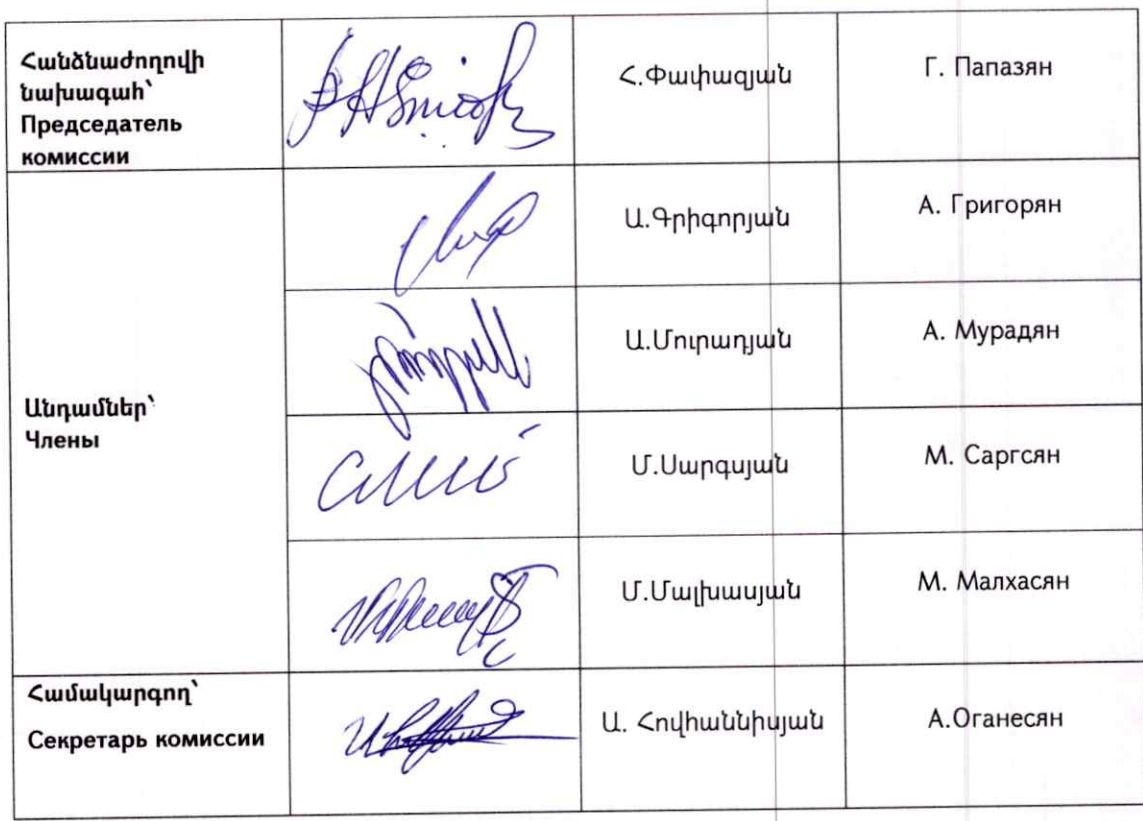 Հանձնաժողովի
նախագահ՝
Председатель
комиссии
Հ.Փափազյան
Г. Папазян
Անդամներ՝
Члены
Ա.Գրիգորյան
А. Григорян
Ա.Մուրադյան
А. Мурадян
Մ.Սարգսյան
М. Саргсян
Մ.Մալխասյան
М. Малхасян
Համակարգող՝
Секретарь комиссии
Ա. Հովհաննիսյան
А.Оганесян